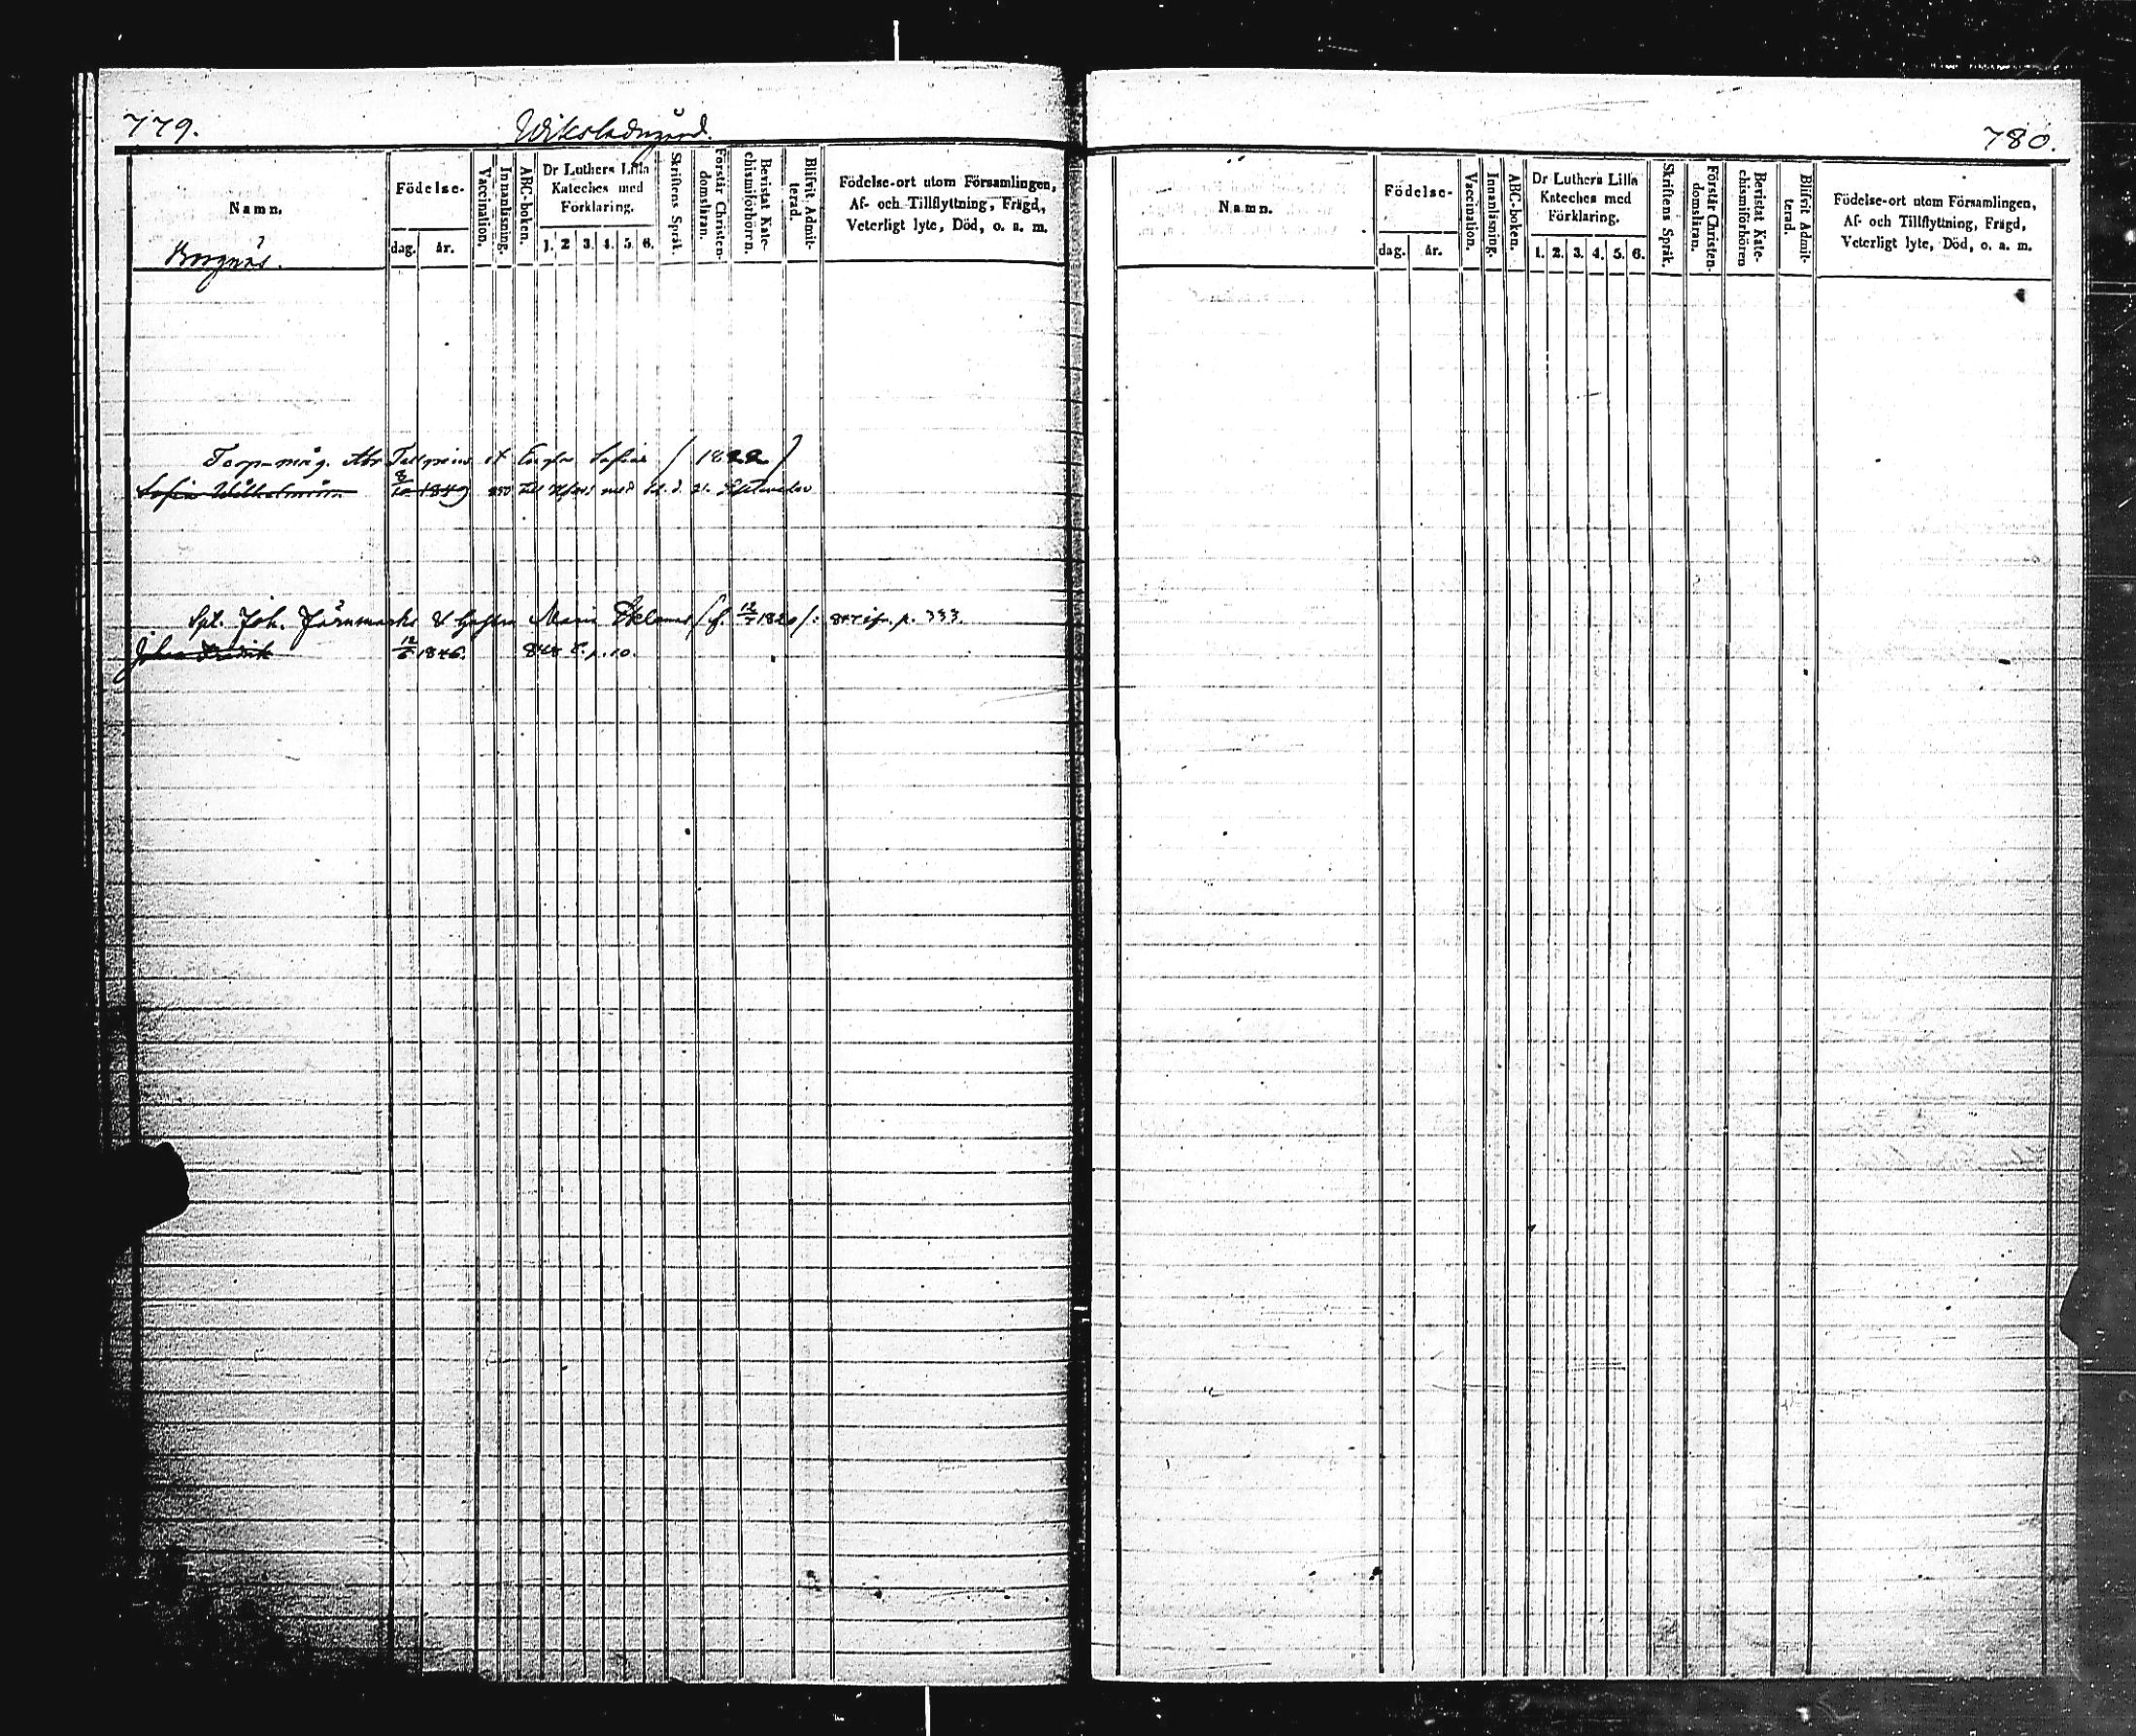 779.
Namn.
Födelse-
dag. år.
Vaccination.
Innanläsning.
ABC-boken.
Dr Luthers Lilla
Kateches med
Förklaring.
1. 2 3. 4. 5. 6.
Skriftens Språk.
Förstår Christen-
domsläran.
Bevistat Kate-
chismiförhören.
Blifvit Admit-
terad.
Födelse-ort utom Församlingen,
Af- och Tillflyttning, Frägd,
Veterligt lyte, Död, o. s. m.
Torp-måg. Abr (1822)
Sofia Wilhelmina 8/10 1849 850 med d. 21. September
Spl. Joh. Järnmarks & Maria Eklunds (f. 12/7 1820): p. 333.
Johan Fredrik 12/6 1846. 848 p. 10.
780.
Namn.
Födelse-
dag. år.
Vaccination.
Innanläsning.
ABC-boken.
Dr Luthers Lilla
Kateches med
Förklaring.
1. 2. 3. 4. 5. 6.
Skriftens Språk.
Förstår Christen-
domsläran.
Bevistat Kate-
chismiförhören
Blifvit Admit-
terad.
Födelse-ort utom Församlingen,
Af- och Tillflyttning, Frägd,
Veterligt lyte, Död, o. a. m.